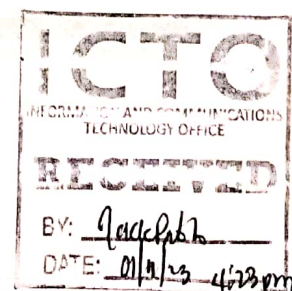 ICTO
INFORMATION AND COMMUNICATIONS
TECHNOLOGY OFFICE
RECEIVED
BY:
DATE: 4:23 pm